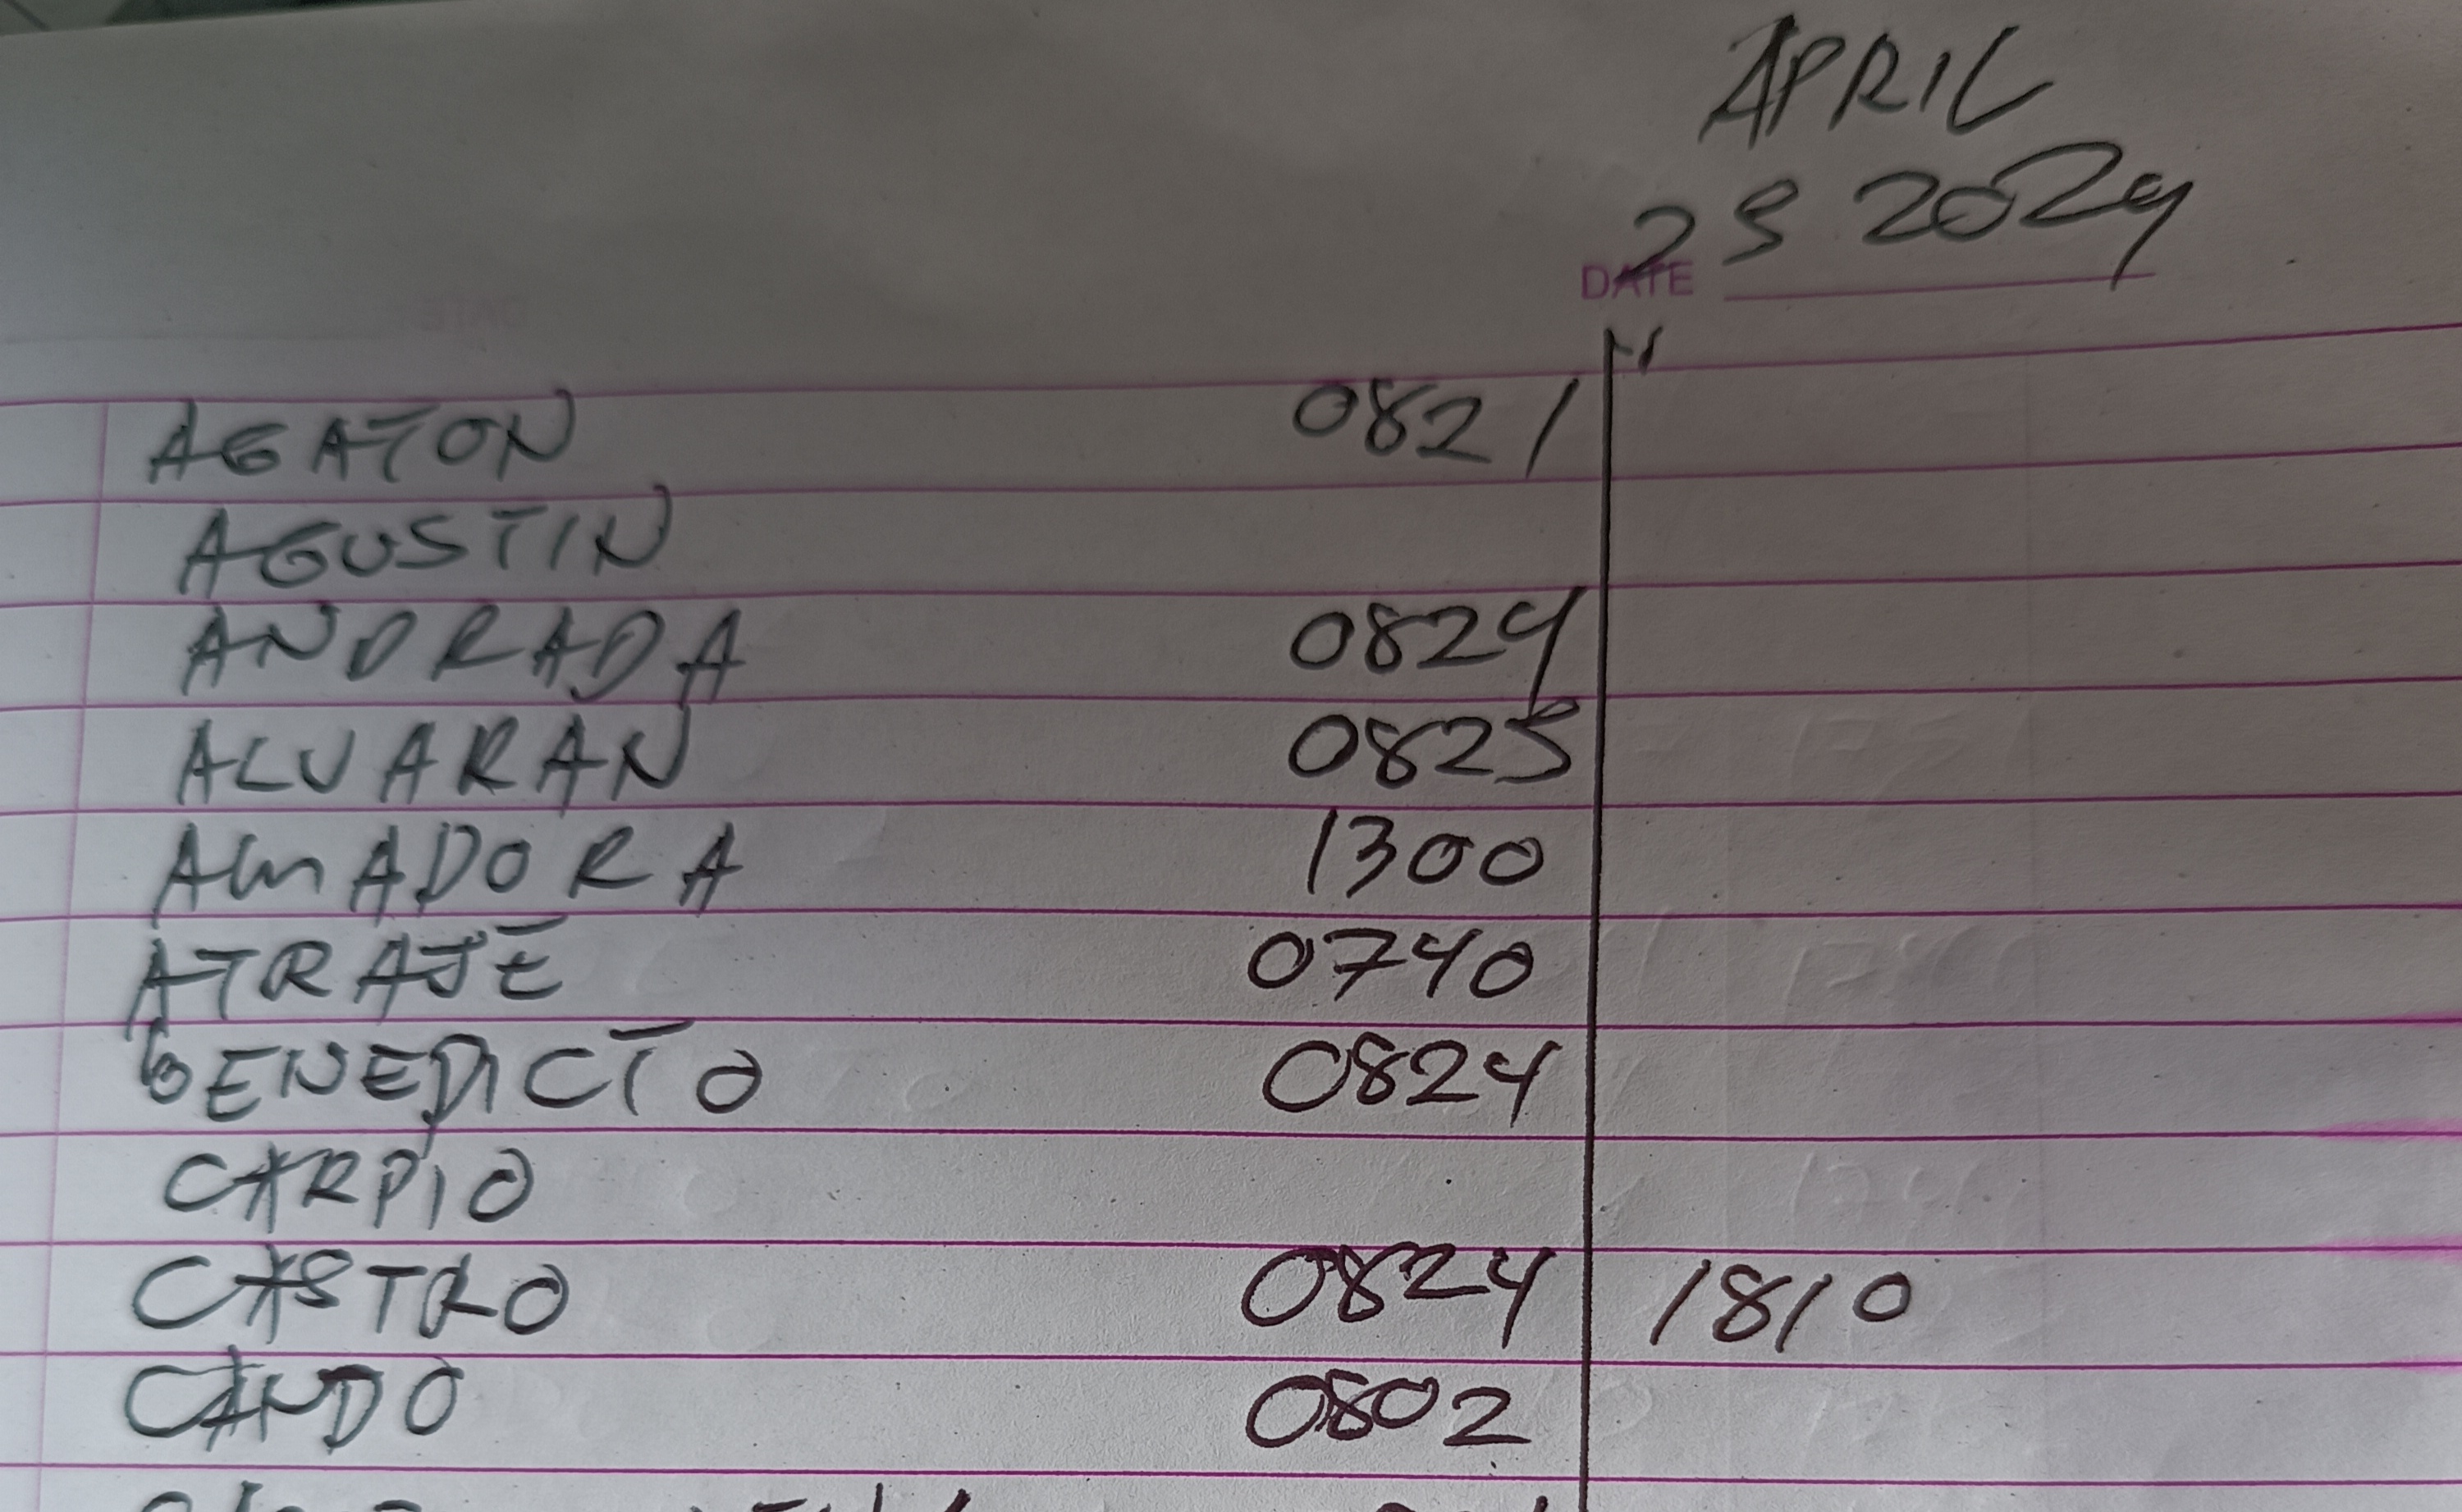 APRIL
25 2024
DATE
AGATON 0821
AGUSTIN
ANDRADA 0824
ALVARAN 0825
ALMADORA 1300
ATRAJE 0740
BENEDICTO 0824
CARPIO
CASTRO 0824 1810
CANDO 0802